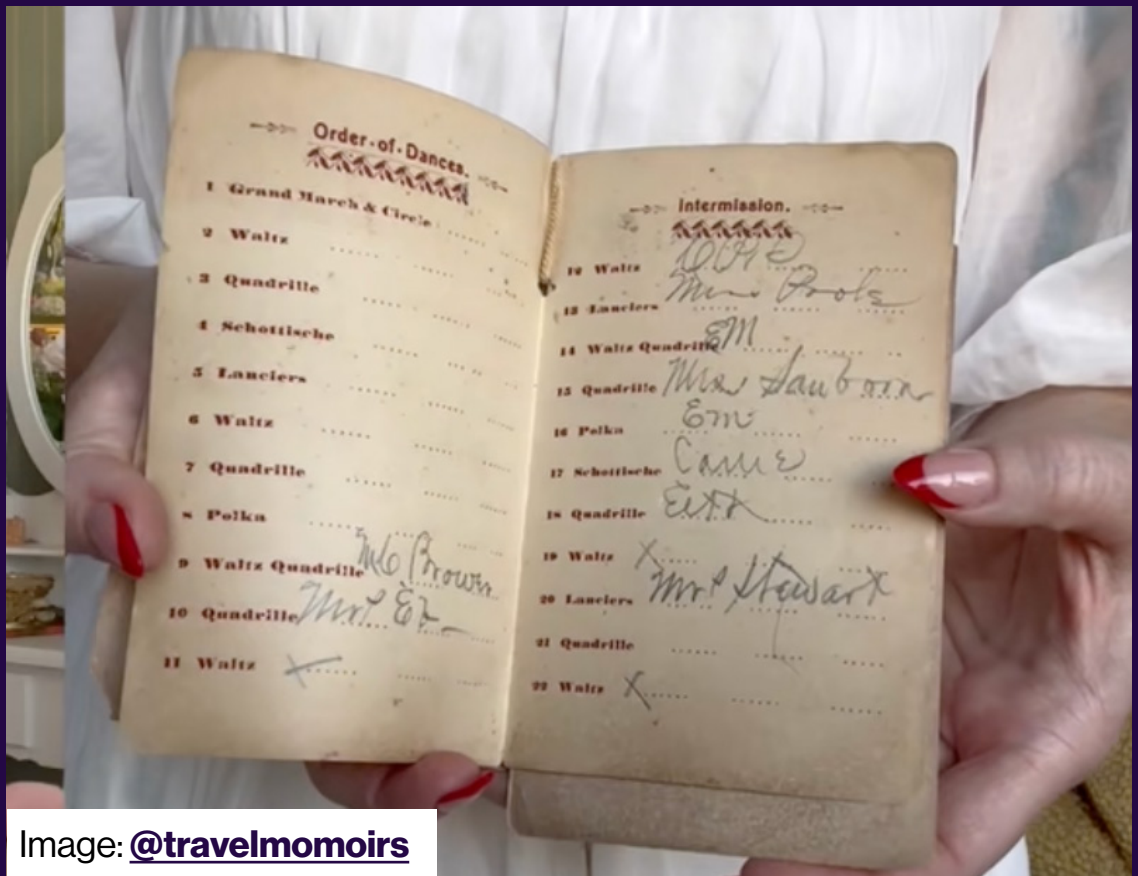 Order-of-Dances.
1 Grand March & Circle
2 Waltz
3 Quadrille
4 Schottische
5 Lanciers
6 Waltz
7 Quadrille
8 Polka
9 Waltz Quadrille Brown
10 Quadrille
11 Waltz X
Intermission.
12 Waltz
13 Lanciers
14 Waltz Quadrille EM
15 Quadrille Mrs Sanborn
16 Polka Em
17 Schottische
18 Quadrille
19 Waltz X
20 Lanciers Stewart
21 Quadrille
22 Waltz X
Image: @travelmomoirs